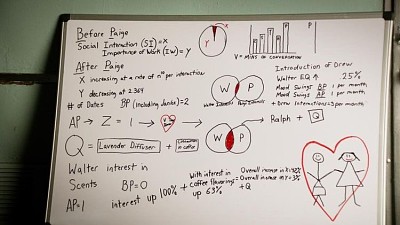 Before Paige
Social Interaction (SI) = X
Importance of Work (IW) = Y
X
Y
P
V = MINS OF CONVERSATION
After Paige
X increasing at a rate of n per interaction
Y decreasing at 2.369
# of Dates BP (including Jacks) = 2
W P
Introduction of Drew
Walter EQ ↑ 25%
Mood Swings BP 1 per month
Mood Swings AP 1 per month
+ Drew Interactions = 3 per month
AP → Z = 1 →
W P
→ Ralph + Q
Q = Lavender Diffuser + in coffee
Walter interest in
Scents BP = 0
AP = 1 interest up 100% +
With interest in
coffee flavorings
up 63%
= Overall increase in X = %
Overall increase in Y = 3%
+ Q